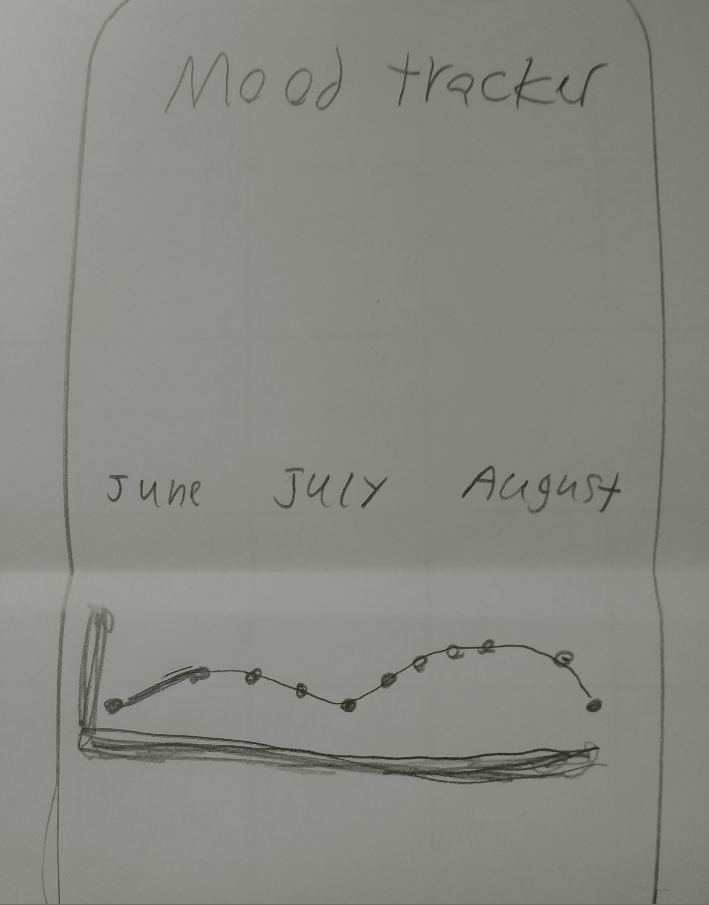 Mood tracker
June JULY August